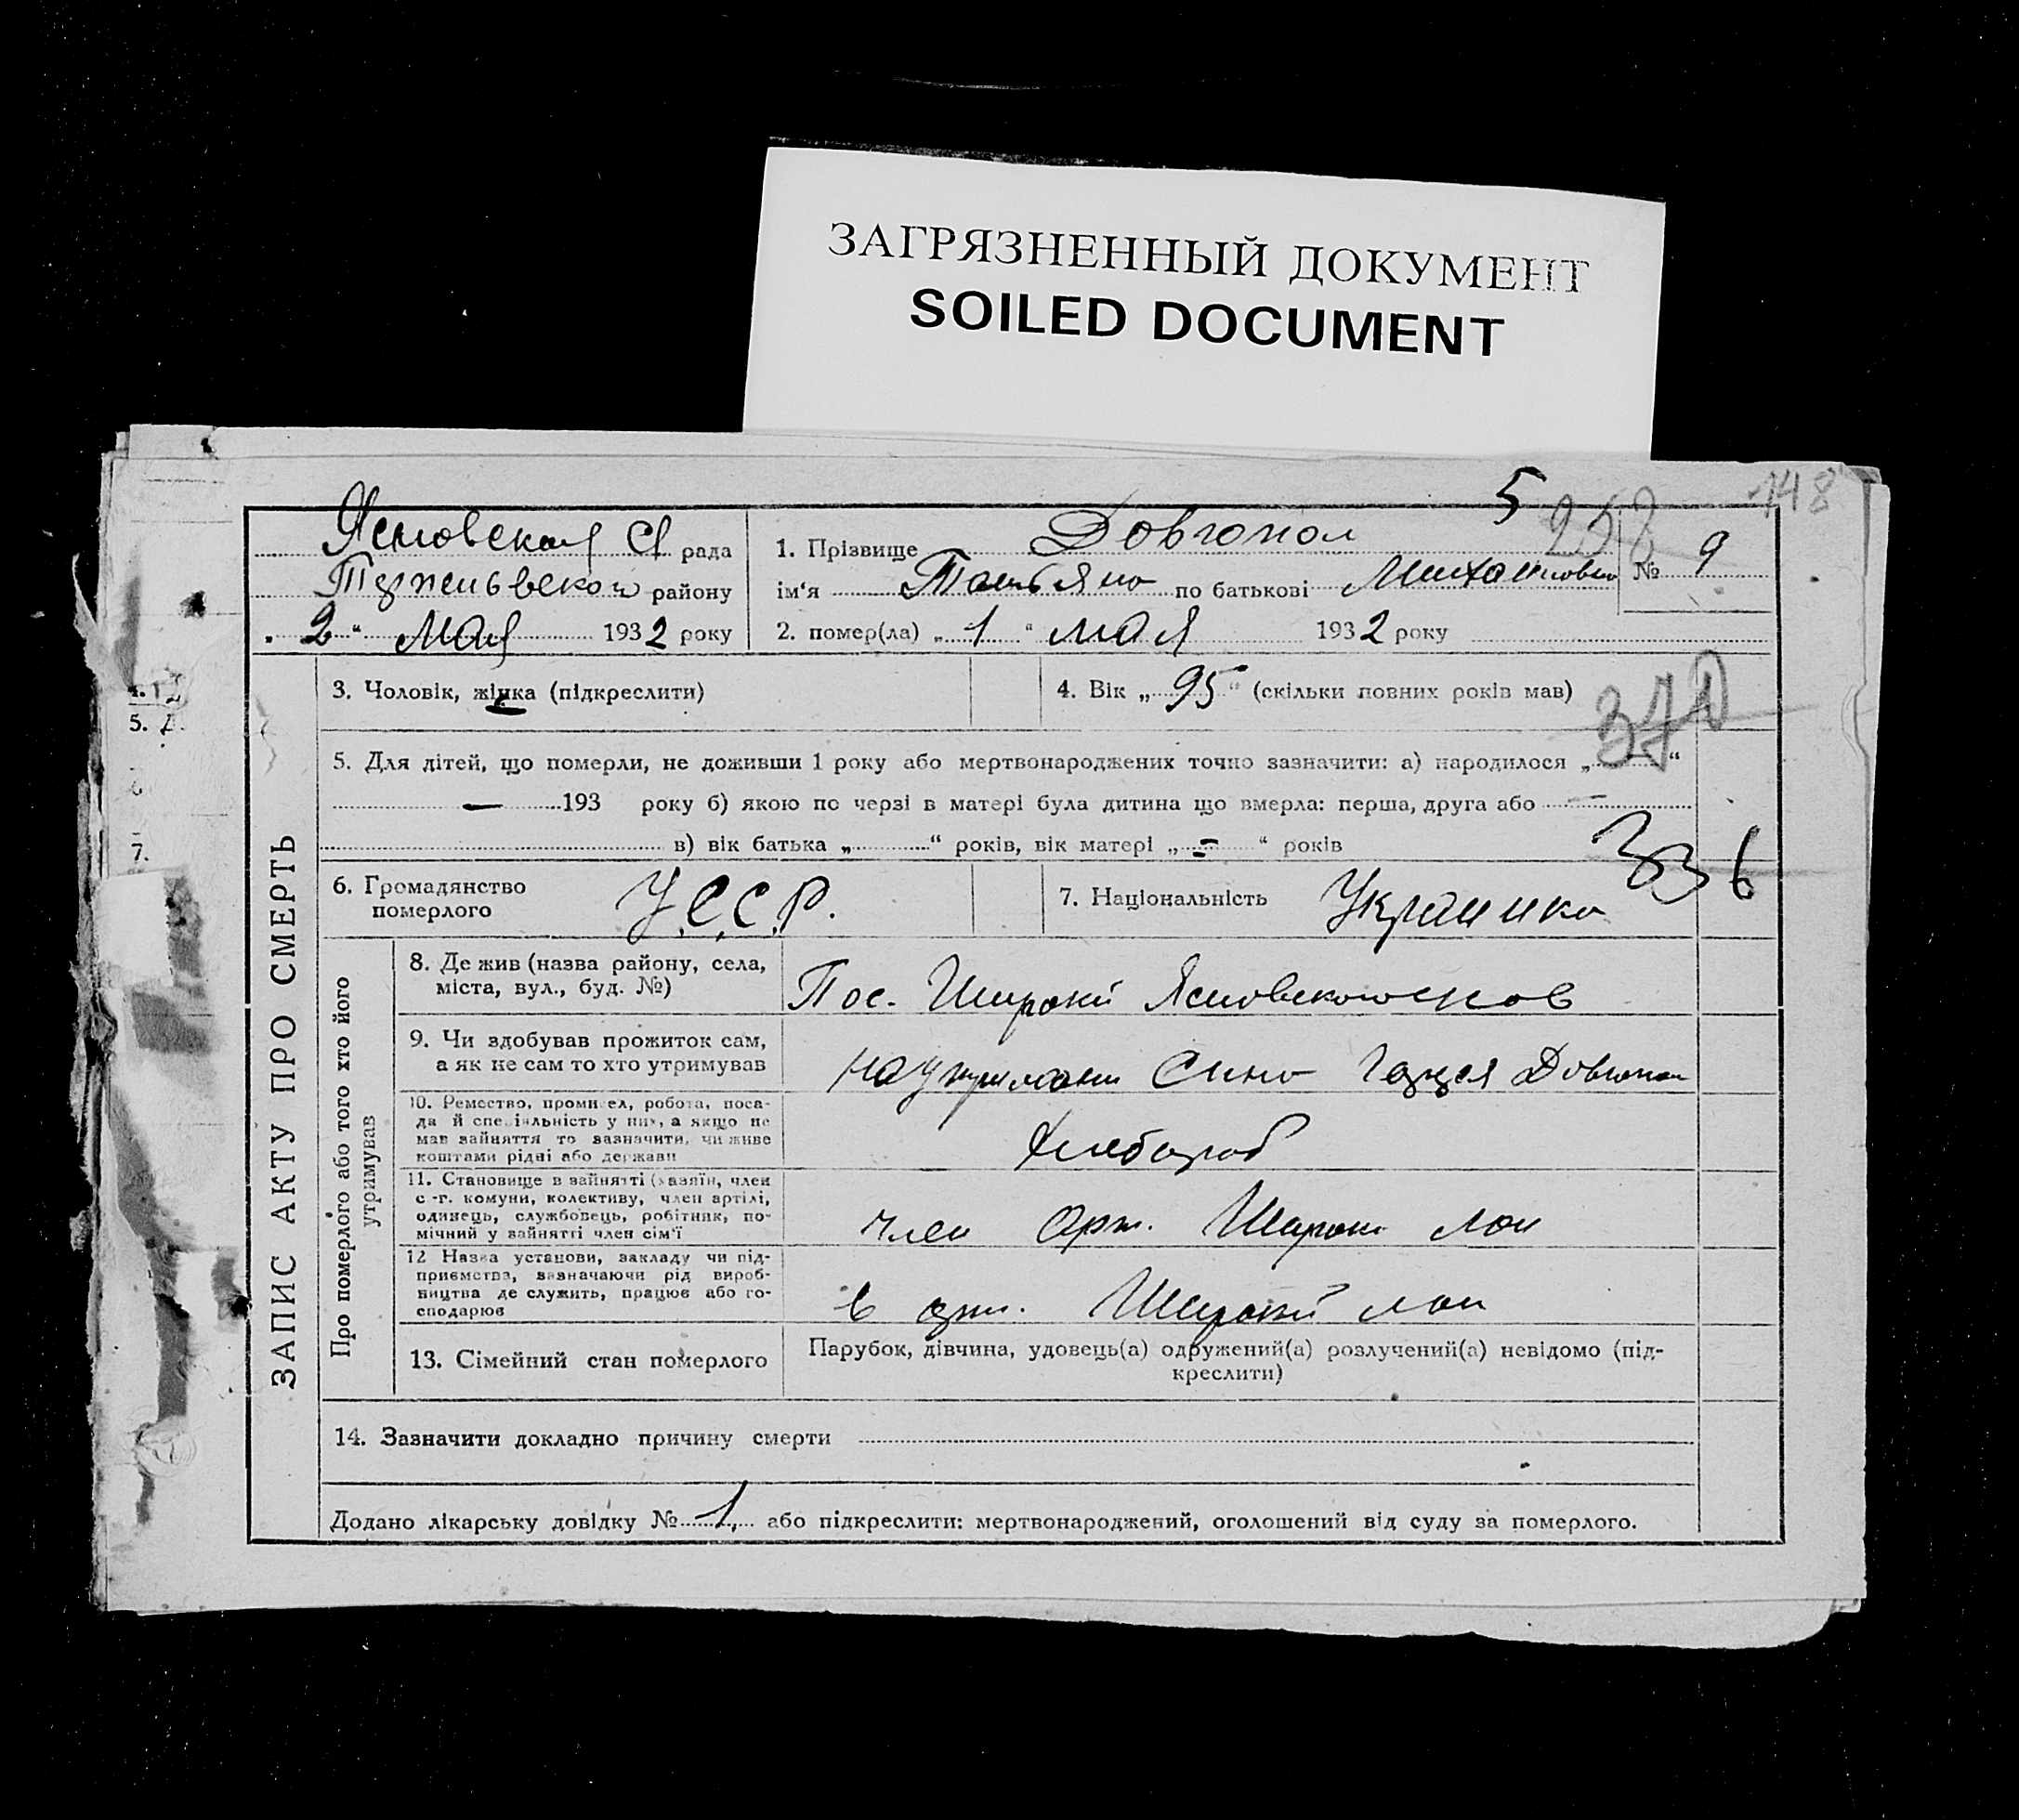 ЗАГРЯЗНЕННЫЙ ДОКУМЕНТ
SOILED DOCUMENT
148
5
257
рада
району
„2“ Мая 1932 року
1. Прізвище Довгопол
ім‘я Татьяна по батькові Михайловна № 9
2. помер(ла) „1“ мая 1932 року
ЗАПИС АКТУ ПРО СМЕРТЬ
3. Чоловік, жінка (підкреслити)
4. Вік „95“ (скільки повних років мав)
370
5. Для дітей, що померли, не доживши 1 року або мертвонароджених точно зазначити: а) народилося „ “
— 193 року б) якою по черзі в матері була дитина що вмерла: перша, друга або —
в) вік батька „ “ років, вік матері „ - “ років
336
6. Громадянство
померлого У.С.С.Р.
7. Національність Украинка
Про померлого або того хто його
утримував
8. Де жив (назва району, села,
міста, вул., буд. №)
Пос. Широкий
9. Чи здобував прожиток сам,
а як не сам то хто утримував
Довгопол
10. Ремество, промисел, робота, поса-
да й спеціяльність у них, а якщо не
мав зайняття то зазначити, чи живе
коштами рідні або держави
Хлебороб
11. Становище в зайнятті (хазяїн, член
с.-г. комуни, колективу, член артілі,
одинець, службовець, робітник, по-
мічний у зайнятті член сім‘ї
член арт. Широки лан
12 Назва установи, закладу чи під-
приємства, зазначаючи рід вироб-
ництва де служить, працює або го-
сподарює
в арт. Широкий лан
13. Сімейний стан померлого
Парубок, дівчина, удовець(а) одружений(а) розлучений(а) невідомо (під-
креслити)
14. Зазначити докладно причину смерти
Додано лікарську довідку № 1, або підкреслити: мертвонароджений, оголошений від суду за померлого.
5.
7.